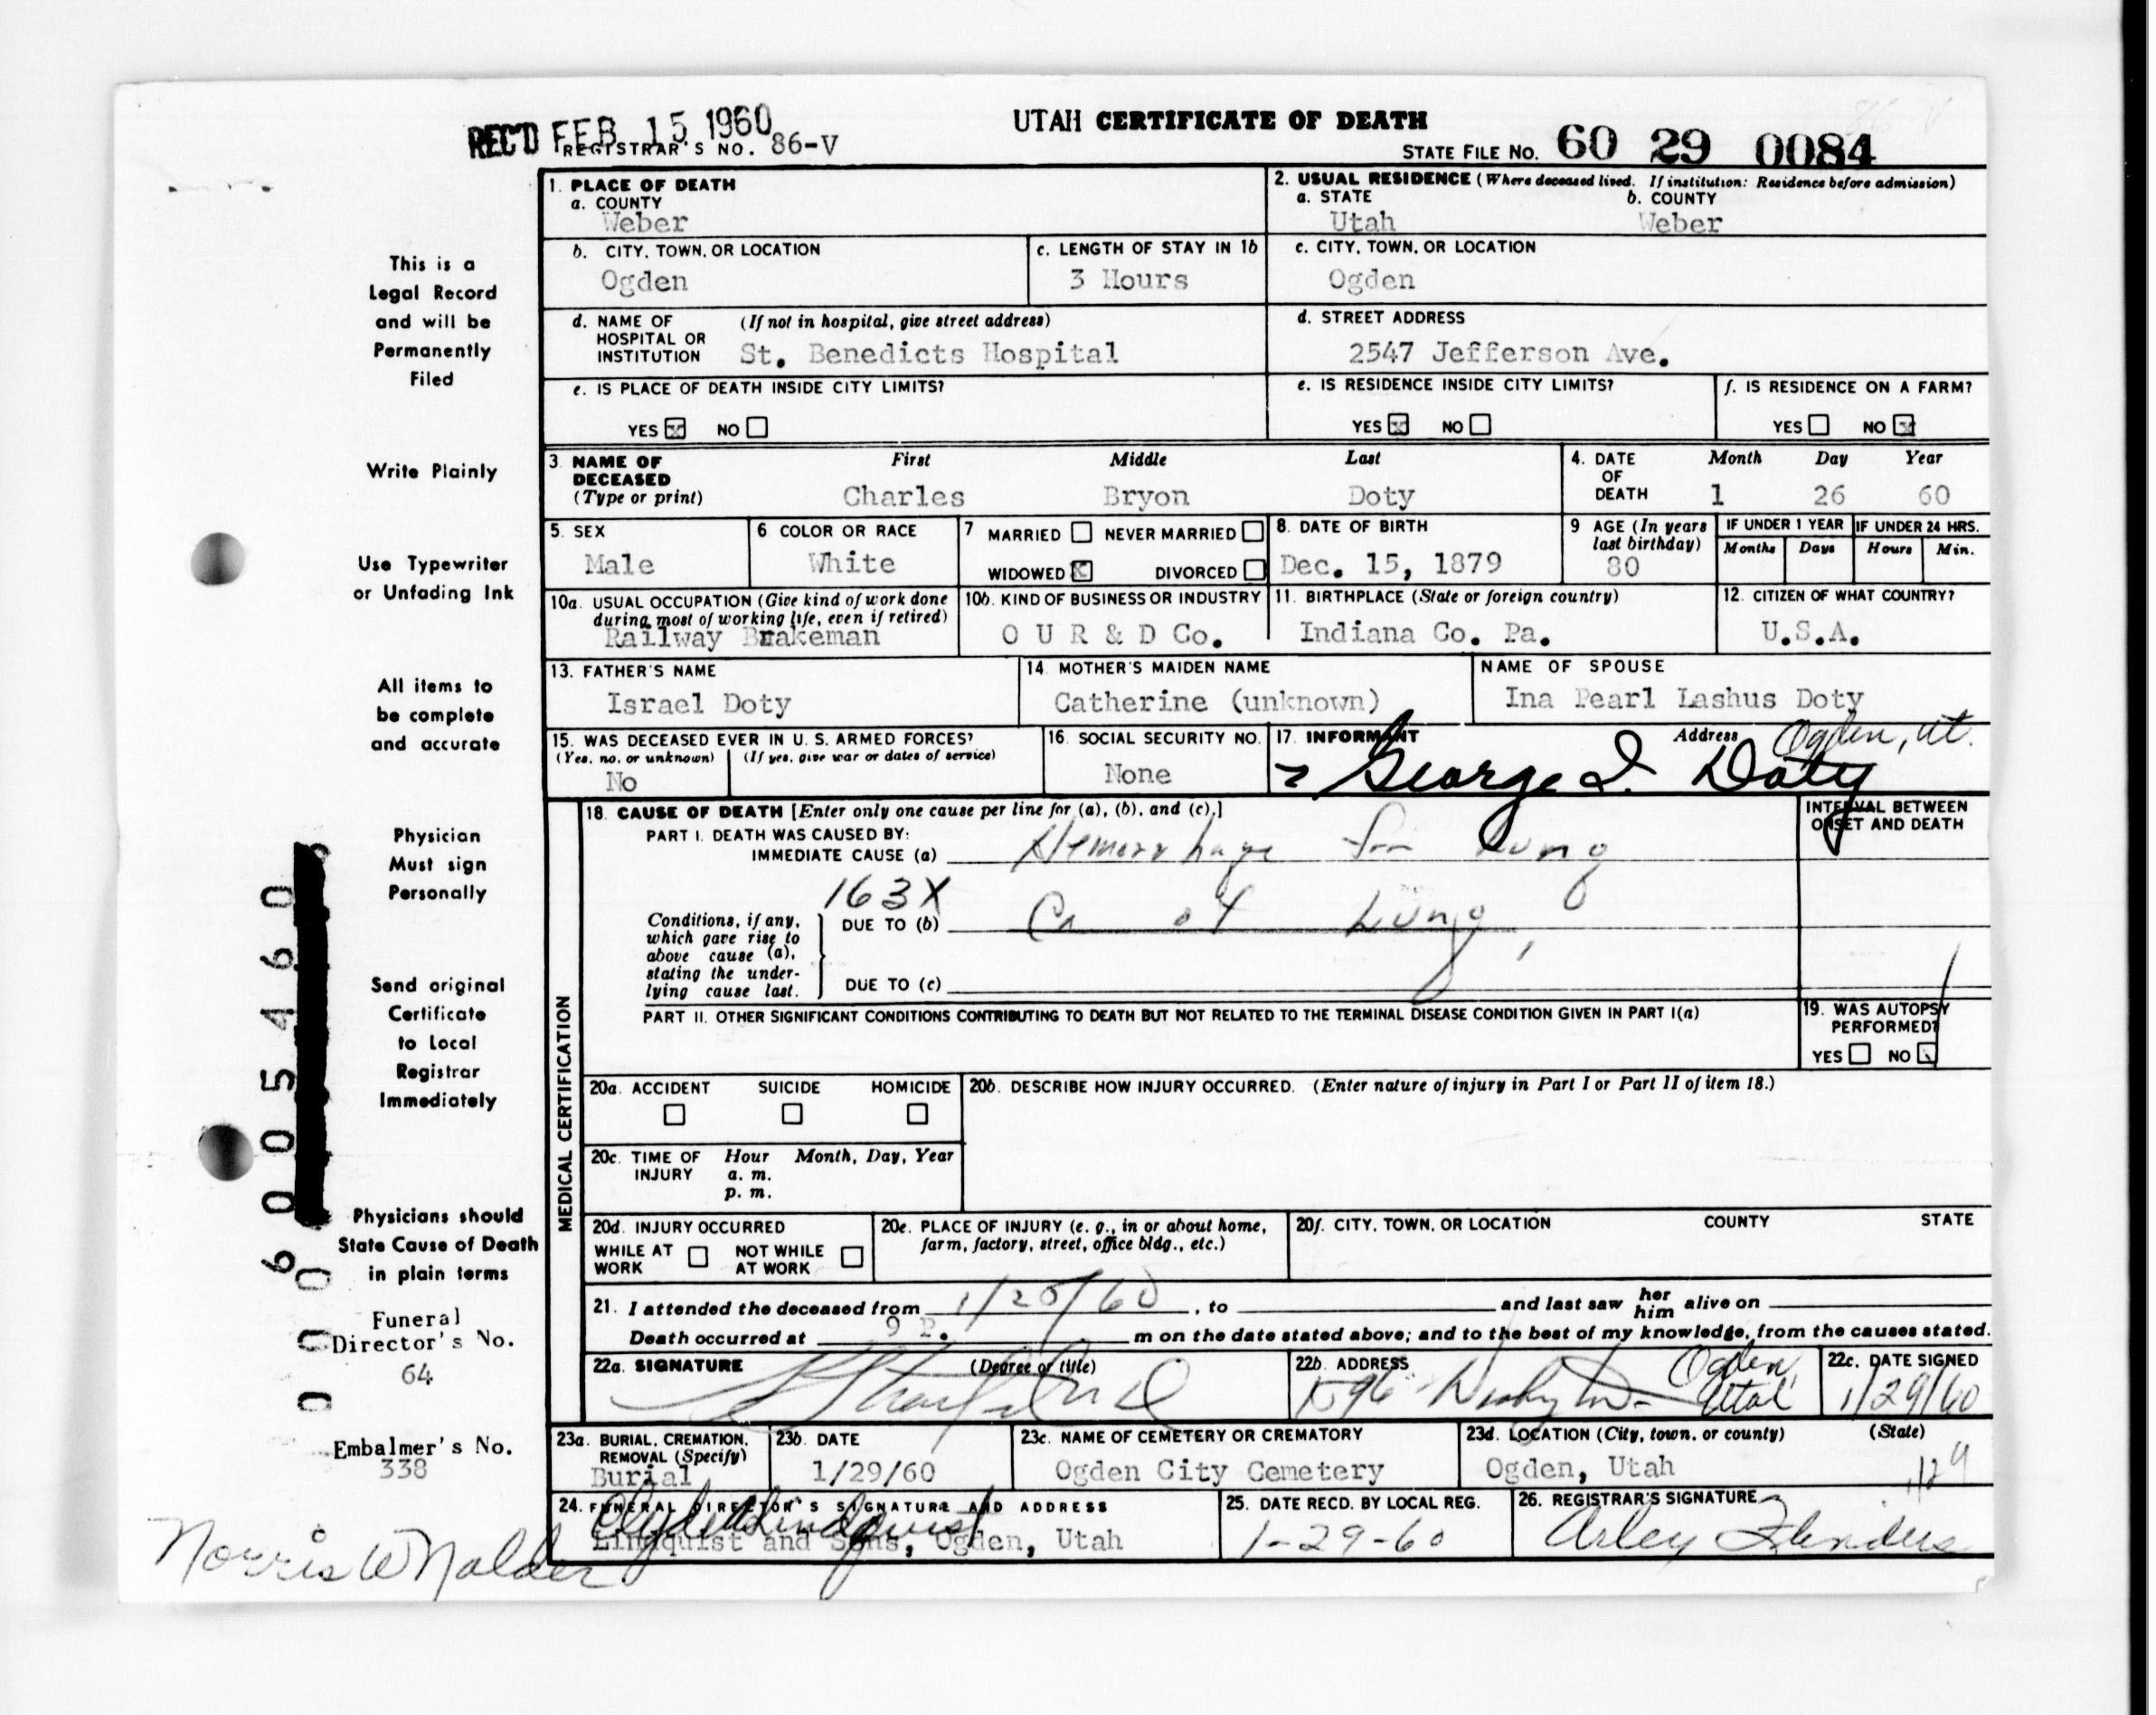 REC'D FEB 15 1960
UTAH CERTIFICATE OF DEATH
REGISTRAR'S NO. 86-V
STATE FILE NO. 60 29 0084
This is a
Legal Record
and will be
Permanently
Filed
Write Plainly
Use Typewriter
or Unfading Ink
All items to
be complete
and accurate
Physician
Must sign
Personally
Send original
Certificate
to Local
Registrar
Immediately
Physicians should
State Cause of Death
in plain terms
Funeral
Director's No.
64
Embalmer's No.
338
Norris W Nalder
1. PLACE OF DEATH
a. COUNTY
Weber
2. USUAL RESIDENCE (Where deceased lived. If institution: Residence before admission)
a. STATE b. COUNTY
Utah Weber
b. CITY, TOWN, OR LOCATION
Ogden
c. LENGTH OF STAY IN 1b
3 Hours
c. CITY, TOWN, OR LOCATION
Ogden
d. NAME OF (If not in hospital, give street address)
HOSPITAL OR
INSTITUTION St. Benedicts Hospital
d. STREET ADDRESS
2547 Jefferson Ave.
e. IS PLACE OF DEATH INSIDE CITY LIMITS?
YES x NO
e. IS RESIDENCE INSIDE CITY LIMITS?
YES x NO
f. IS RESIDENCE ON A FARM?
YES NO x
3. NAME OF DECEASED (Type or print)
First Middle Last
Charles Bryon Doty
4. DATE OF DEATH
Month Day Year
1 26 60
5. SEX
Male
6 COLOR OR RACE
White
7 MARRIED NEVER MARRIED
WIDOWED x DIVORCED
8. DATE OF BIRTH
Dec. 15, 1879
9 AGE (In years last birthday)
80
IF UNDER 1 YEAR
Months Days
IF UNDER 24 HRS.
Hours Min.
10a. USUAL OCCUPATION (Give kind of work done
during most of working life, even if retired)
Railway Brakeman
10b. KIND OF BUSINESS OR INDUSTRY
O U R & D Co.
11. BIRTHPLACE (State or foreign country)
Indiana Co. Pa.
12. CITIZEN OF WHAT COUNTRY?
U.S.A.
13. FATHER'S NAME
Israel Doty
14. MOTHER'S MAIDEN NAME
Catherine (unknown)
NAME OF SPOUSE
Ina Pearl Lashus Doty
15. WAS DECEASED EVER IN U. S. ARMED FORCES?
(Yes, no, or unknown) (If yes, give war or dates of service)
No
16. SOCIAL SECURITY NO.
None
17. INFORMANT Address Ogden, Ut.
George I. Doty
MEDICAL CERTIFICATION
18. CAUSE OF DEATH [Enter only one cause per line for (a), (b), and (c).]
PART I. DEATH WAS CAUSED BY:
IMMEDIATE CAUSE (a) Hemorrhage Lung
163X
Conditions, if any,
which gave rise to
above cause (a),
stating the under-
lying cause last.
DUE TO (b) Ca of Lung
DUE TO (c)
INTERVAL BETWEEN
ONSET AND DEATH
PART II. OTHER SIGNIFICANT CONDITIONS CONTRIBUTING TO DEATH BUT NOT RELATED TO THE TERMINAL DISEASE CONDITION GIVEN IN PART I(a)
19. WAS AUTOPSY
PERFORMED?
YES NO
20a. ACCIDENT SUICIDE HOMICIDE
20b. DESCRIBE HOW INJURY OCCURRED. (Enter nature of injury in Part I or Part II of item 18.)
20c. TIME OF INJURY
Hour Month, Day, Year
a. m.
p. m.
20d. INJURY OCCURRED
WHILE AT WORK NOT WHILE AT WORK
20e. PLACE OF INJURY (e. g., in or about home,
farm, factory, street, office bldg., etc.)
20f. CITY, TOWN, OR LOCATION COUNTY STATE
21. I attended the deceased from 1/25/60, to and last saw her him alive on
Death occurred at 9 P. m on the date stated above; and to the best of my knowledge, from the causes stated.
22a. SIGNATURE (Degree or title)
22b. ADDRESS
Ogden, Utah
22c. DATE SIGNED
1/29/60
23a. BURIAL, CREMATION,
REMOVAL (Specify)
Burial
23b. DATE
1/29/60
23c. NAME OF CEMETERY OR CREMATORY
Ogden City Cemetery
23d. LOCATION (City, town, or county) (State)
Ogden, Utah
24. FUNERAL DIRECTOR'S SIGNATURE AND ADDRESS
Clyde Lindquist
Lindquist and Sons, Ogden, Utah
25. DATE RECD. BY LOCAL REG.
1-29-60
26. REGISTRAR'S SIGNATURE
Arley Flinders
6005460